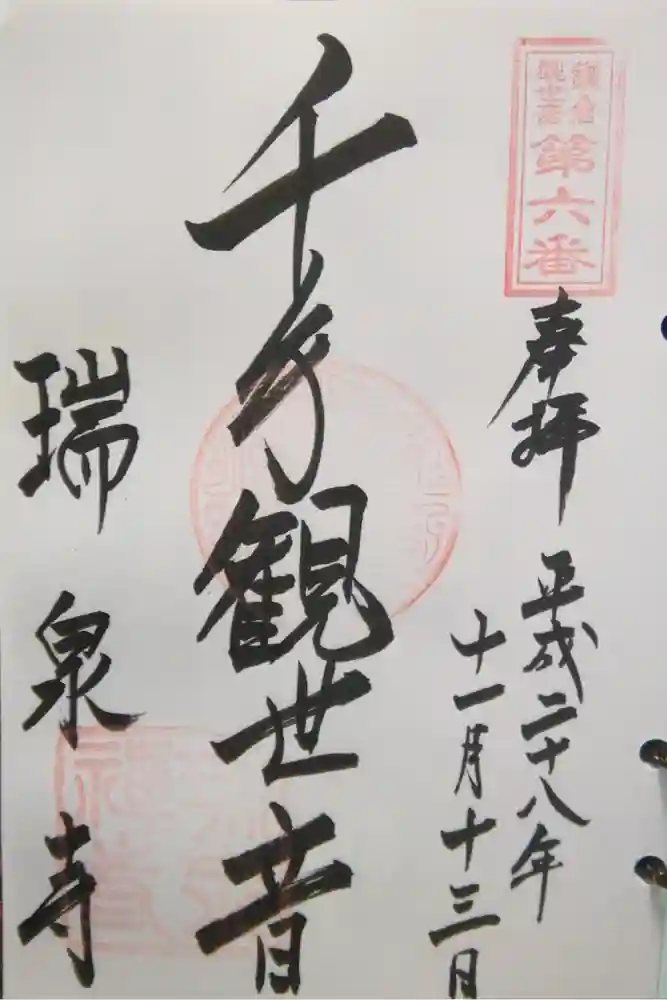 鎌倉
観世音
第六番
奉拝
平成二十八年
十一月十三日
千手観世音
瑞泉寺